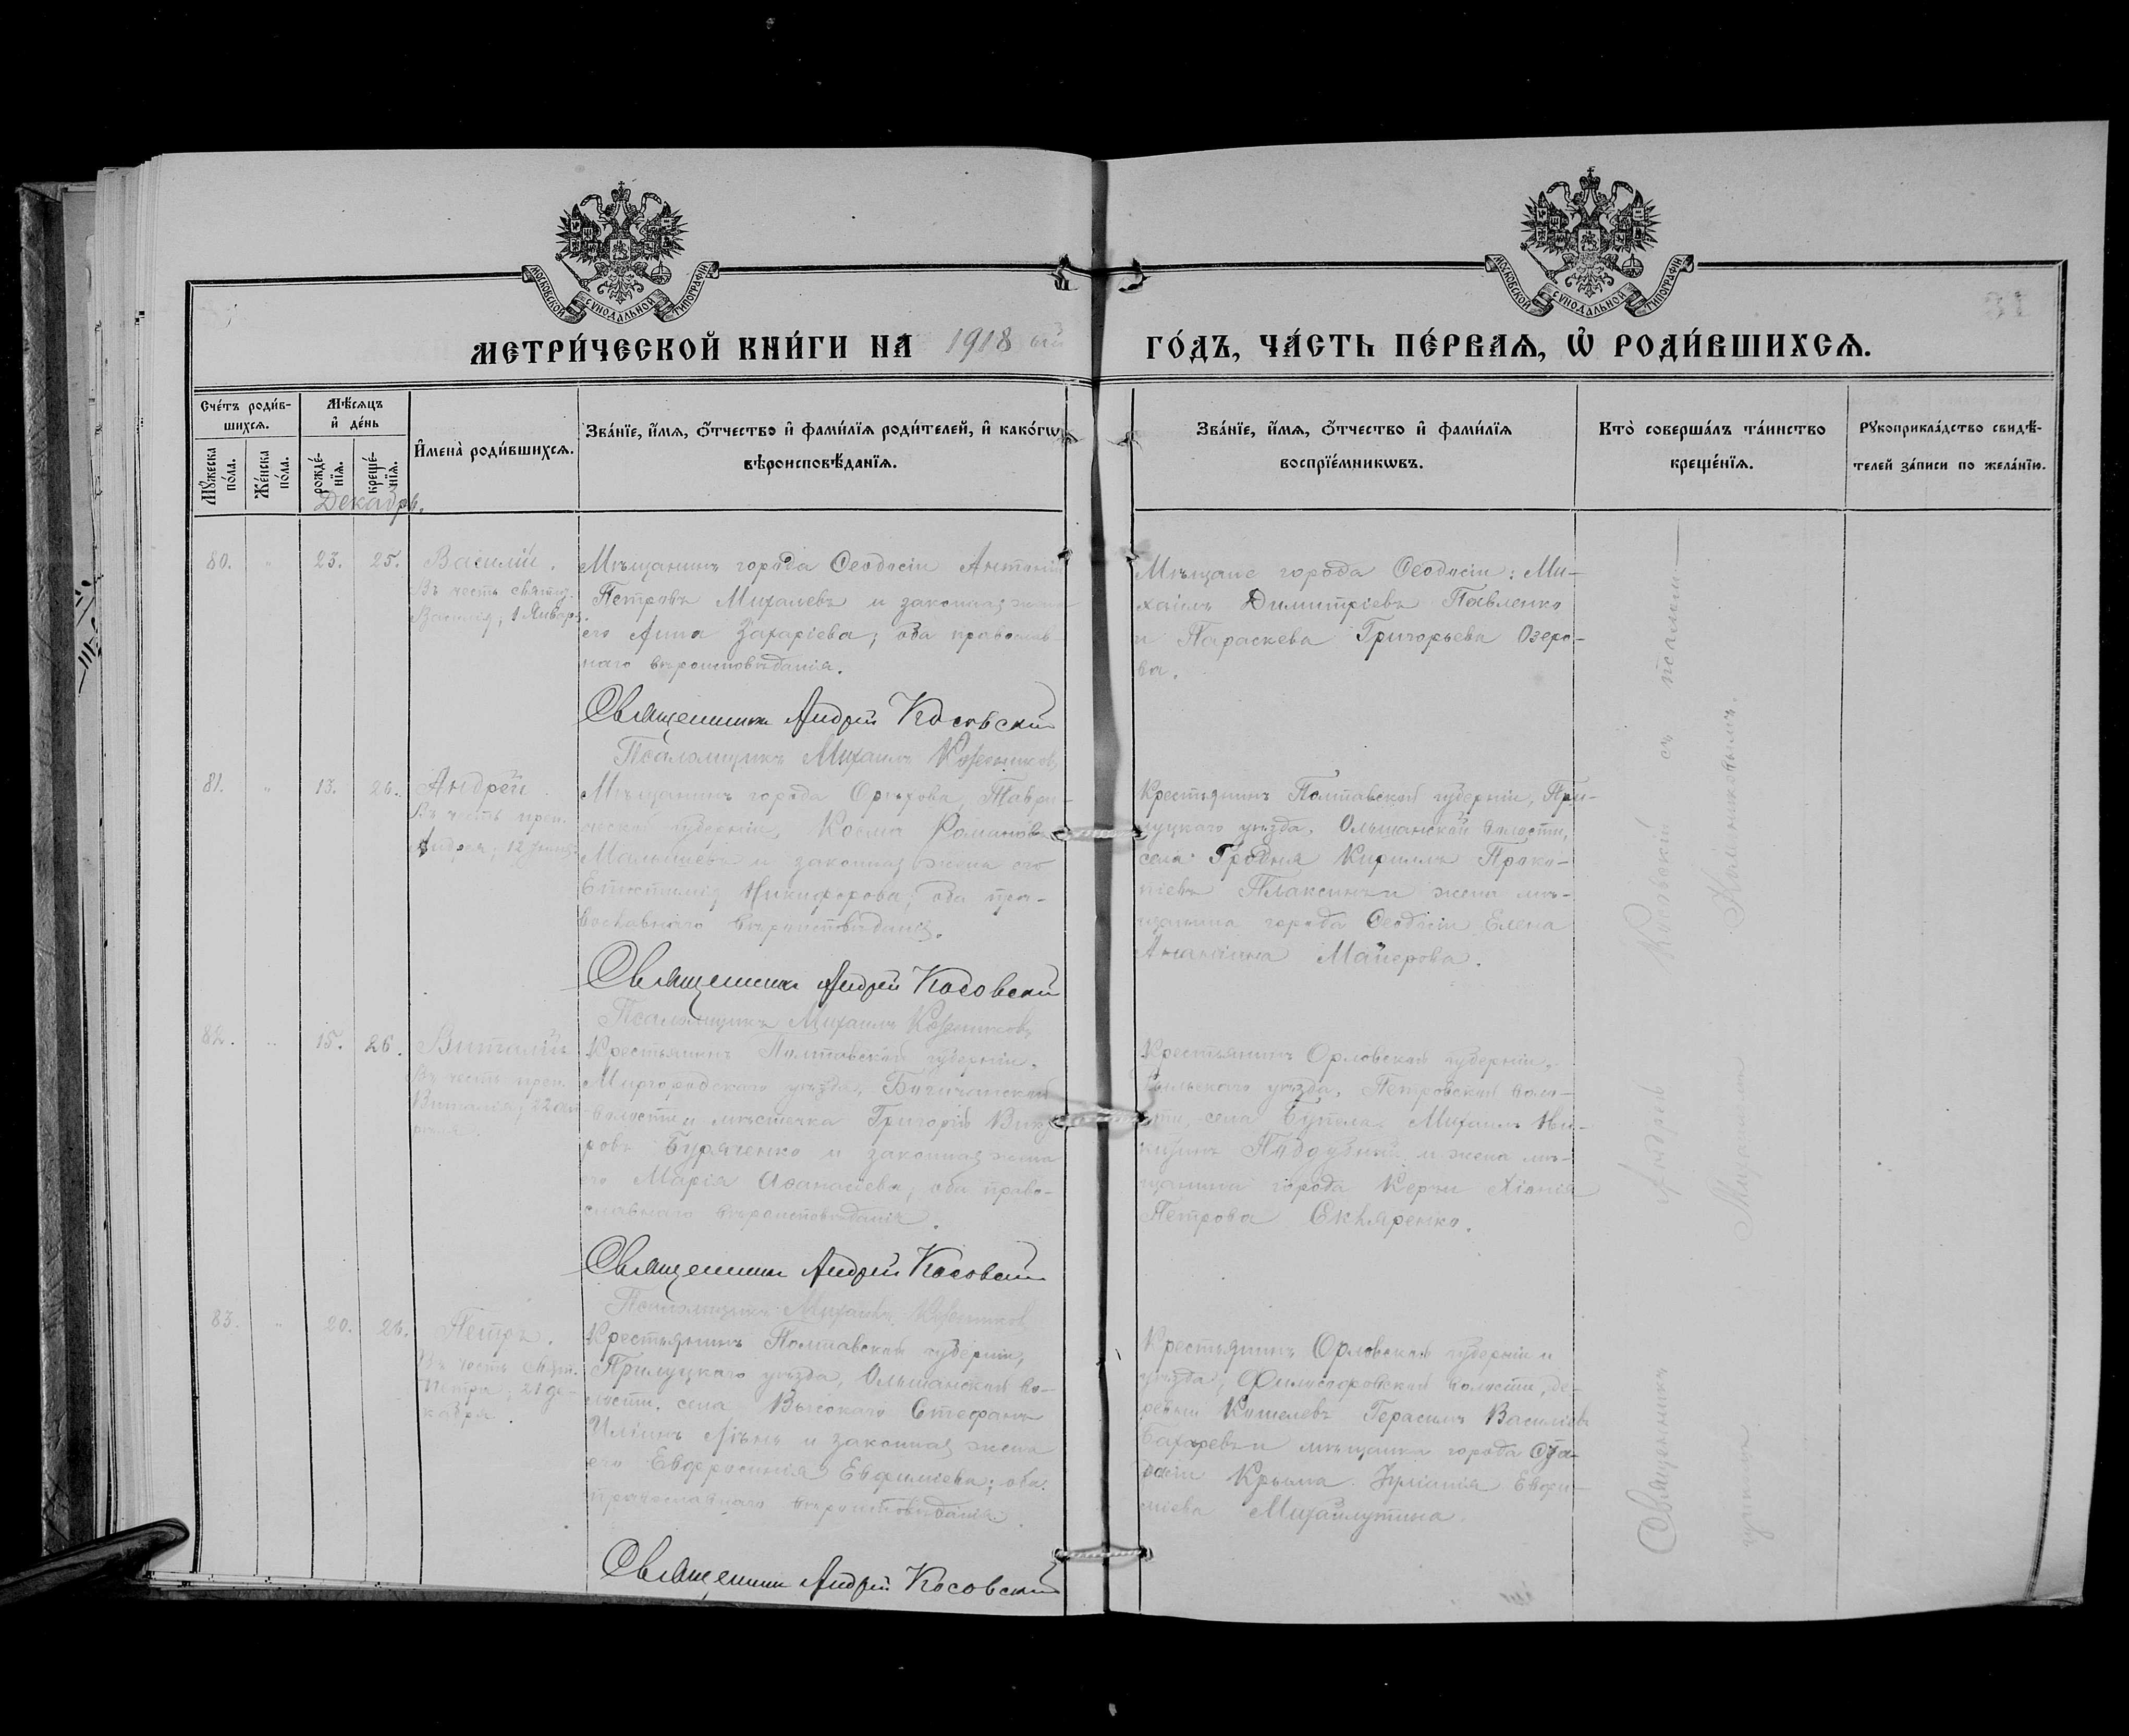 МОСКОВСКОЙ СУНОДАЛЬНОЙ ТИПОГРАФІИ
МОСКОВСКОЙ СУНОДАЛЬНОЙ ТИПОГРАФІИ
МЕТРИ́ЧЕСКОЙ КНИ́ГИ НА 1918 ый
ГО́ДЪ, ЧА́СТЬ ПЕ́РВАѦ, Ѡ҆ РОДИ́ВШИХСѦ.
Сче́тъ роди́в-
шихсѧ.
Мꙋ́жеска по́ла.
Же́нска по́ла.
Мѣ́сѧцъ
и҆ де́нь
рожде́-
нїѧ.
креще́-
нїѧ.
Декабрь.
И҆мена̀ роди́вшихсѧ.
Зва́нїе, и҆́мѧ, ѻ҆́тчество и҆ фами́лїѧ роди́телей, и҆ како́гѡ
вѣроисповѣ́данїѧ.
Зва́нїе, и҆́мѧ, ѻ҆́тчество и҆ фами́лїѧ
воспрїе́мникѡвъ.
Кто̀ соверша́лъ та́инство
креще́нїѧ.
Рꙋкоприкла́дство свидѣ́-
телей за́писи по жела́нїю.
80. " 23. 25. Василій.
Въ честь святит.
Василія, 1 Января.
Мѣщанинъ города Ѳеодосіи Антоній
Петровъ Михалевъ и законная жена
его Анна Захаріева; оба православ-
наго вѣроисповѣданія.
Священникъ Андрей Косовскій
Псаломщикъ Михаилъ
Мѣщане города Ѳеодосіи: Ми-
хаилъ Димитріевъ Павленко
и Параскева Григорьева Озеро-
ва.
81. " 13. 26. Андрей
Въ честь преп.
Андрея; 12
Мѣщанинъ города Орѣхова, Таври-
ческой губерніи, Косма Романовъ
Малышевъ и законная жена его
Никифорова; оба пра-
вославнаго вѣроисповѣданія.
Священникъ Андрей Косовскій
Псаломщикъ Михаилъ
Крестьянинъ Полтавской губерніи, При-
луцкаго уѣзда, Ольшанской волости,
села Гродня Кириллъ Проко-
піевъ Плаксинъ и жена мѣ-
щанина города Ѳеодосіи Елена
Ананіина Майерова.
82. " 15. 26. Виталій
Въ честь преп.
Виталія; 22 Ап-
рѣля.
Крестьянинъ Полтавской губерніи,
Миргородскаго уѣзда,
волости и мѣстечка Григорій
ровъ Буряченко и законная жена
его Марія Аѳанасіева; оба право-
славнаго вѣроисповѣданія.
Священникъ Андрей Косовскій
Псаломщикъ Михаилъ
Крестьянинъ Орловской губерніи,
уѣзда, Петровской воло-
сти, села Михаилъ Ни-
Поддубный и жена мѣ-
щанина города Керчи Хіонія
Петрова Скляренко.
83. " 20. 26. Петръ.
Въ честь Свят.
Петра; 21 де-
кабря.
Крестьянинъ Полтавской губерніи,
Прилуцкаго уѣзда, Ольшанской во-
лости, села Высокаго Стефанъ
Иліинъ и законная жена
его Евфросинія Евфиміева; оба
православнаго вѣроисповѣданія.
Священникъ Андрей Косовскій
Крестьянинъ Орловской губерніи и
уѣзда, волости, де-
ревни Кошелевъ Герасимъ Василіевъ
и мѣщанка города
Крыма Іуліанія Евфи-
міева
Священникъ Андрей Косовскій съ псалом-
щикомъ Михаиломъ